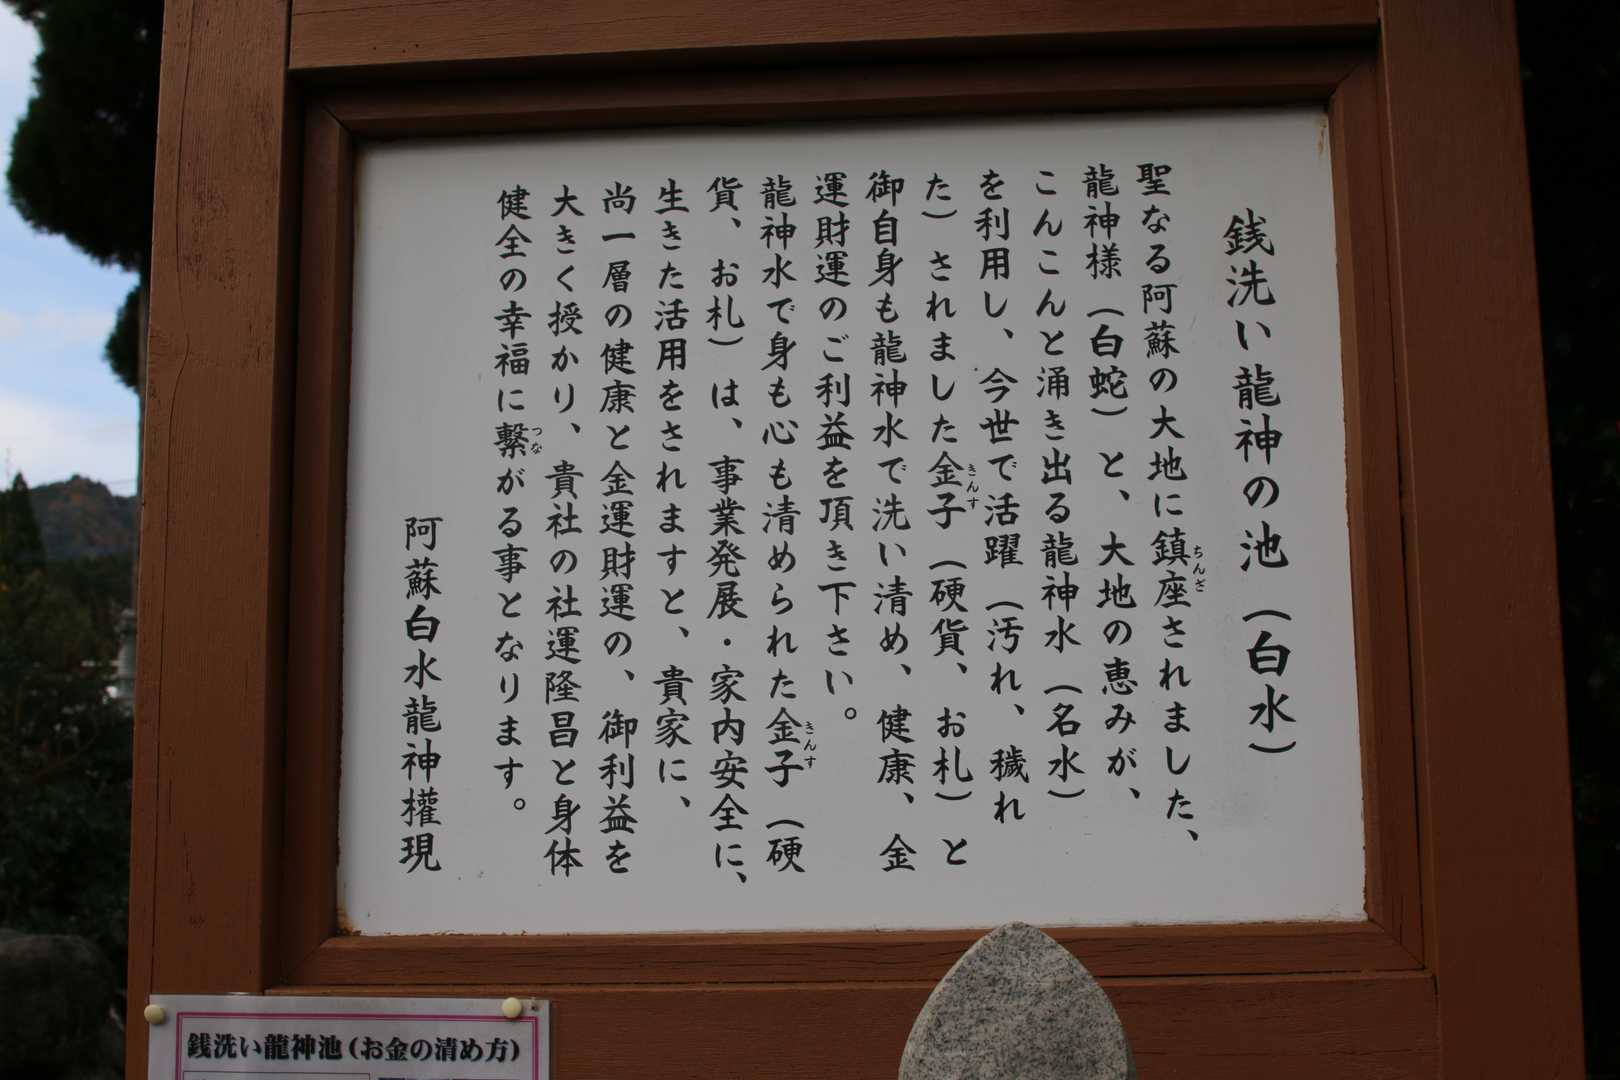 銭洗い龍神の池（白水）
聖なる阿蘇の大地に鎮座されました、
龍神様（白蛇）と、大地の恵みが、
こんこんと涌き出る龍神水（名水）
を利用し、今世で活躍（汚れ、穢れ
た）されました金子（硬貨、お札）と
御自身も龍神水で洗い清め、健康、金
運財運のご利益を頂き下さい。
龍神水で身も心も清められた金子（硬
貨、お札）は、事業発展・家内安全に、
生きた活用をされますと、貴家に、
尚一層の健康と金運財運の、御利益を
大きく授かり、貴社の社運隆昌と身体
健全の幸福に繋がる事となります。
阿蘇白水龍神權現
ちんざ
きんす
きんす
つな
銭洗い龍神池（お金の清め方）